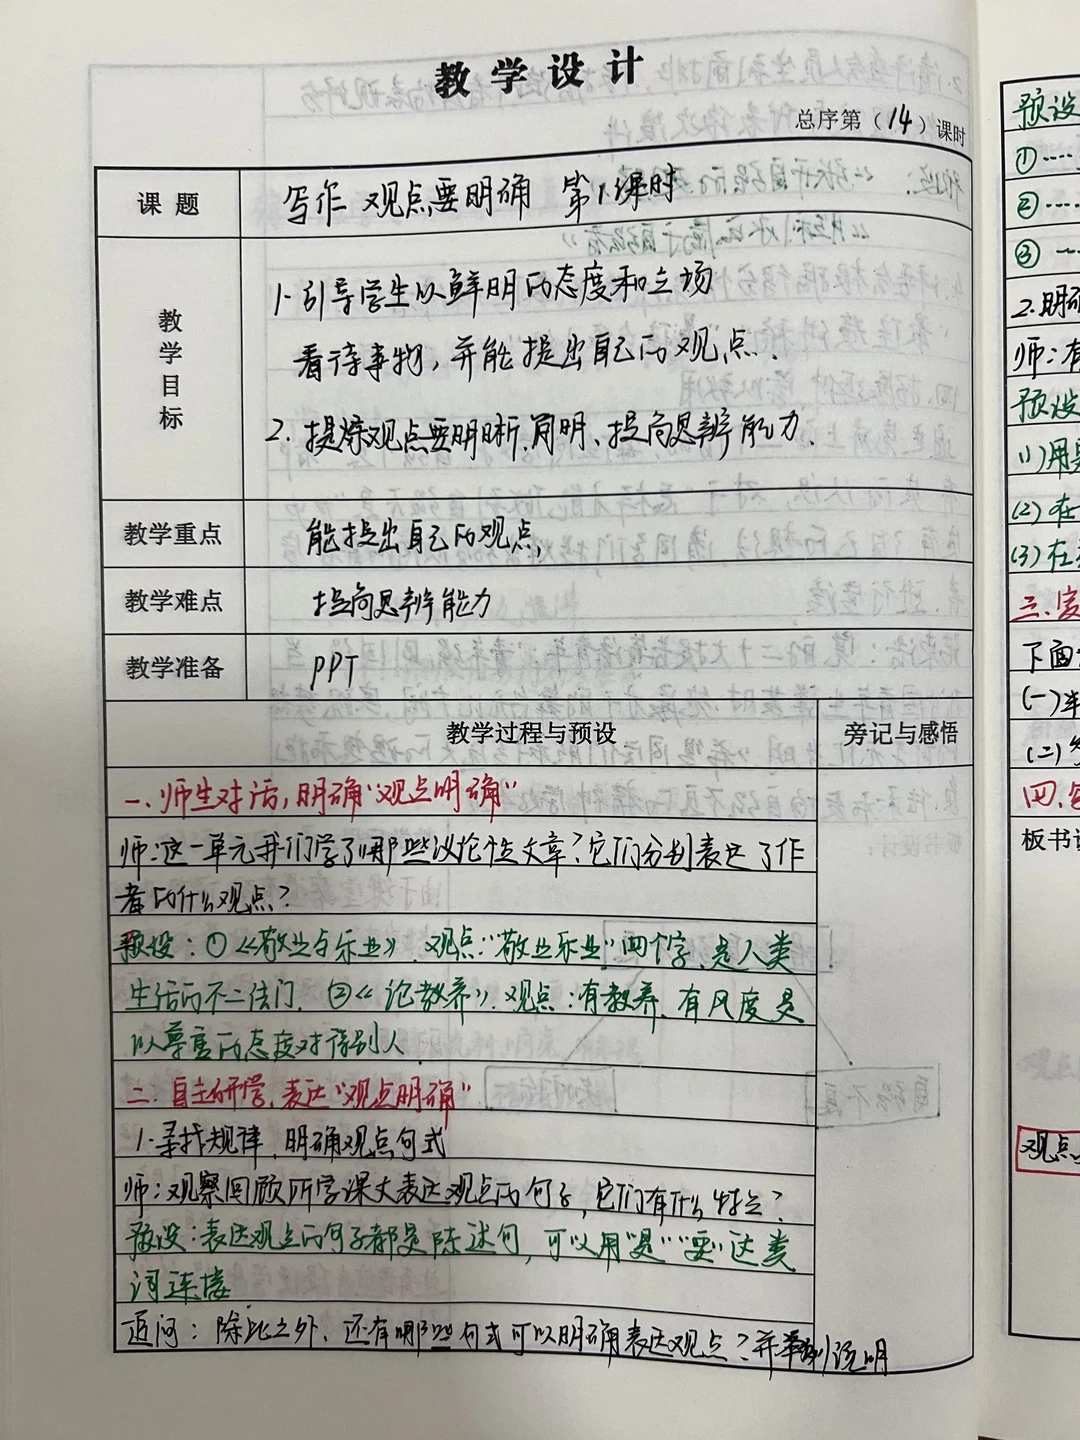 教学设计
总序第（14）课时
课题
写作 观点要明确 第1课时
教学目标
1.引导学生以鲜明的态度和立场
看待事物，并能提出自己的观点.
2.提炼观点要明晰.简明、提高思辨能力.
教学重点
能提出自己的观点.
教学难点
提高思辨能力
教学准备
PPT
教学过程与预设
旁记与感悟
一.师生对话,明确“观点明确”
师:这一单元我们学了哪些议论性文章?它们分别表达了作
者的什么观点?
预设：①《敬业与乐业》.观点:“敬业乐业”四个字,是人类
生活的不二法门. ②《论教养》.观点：有教养.有风度是
以尊重的态度对待别人.
二.自主研学,表达“观点明确”
1.寻找规律,明确观点句式
师:观察回顾所学课文表达观点的句子,它们有什么特点?
预设:表达观点的句子都是陈述句,可以用“是”“要”这类
词连接
追问：除此之外,还有哪些句式可以明确表达观点?并举例说明
预设
①....
②....
③
2.明确
师:有
预设
(1)用
(2)在
(3)在
三.
下面
(一)
(二)
四.
板书设
观点